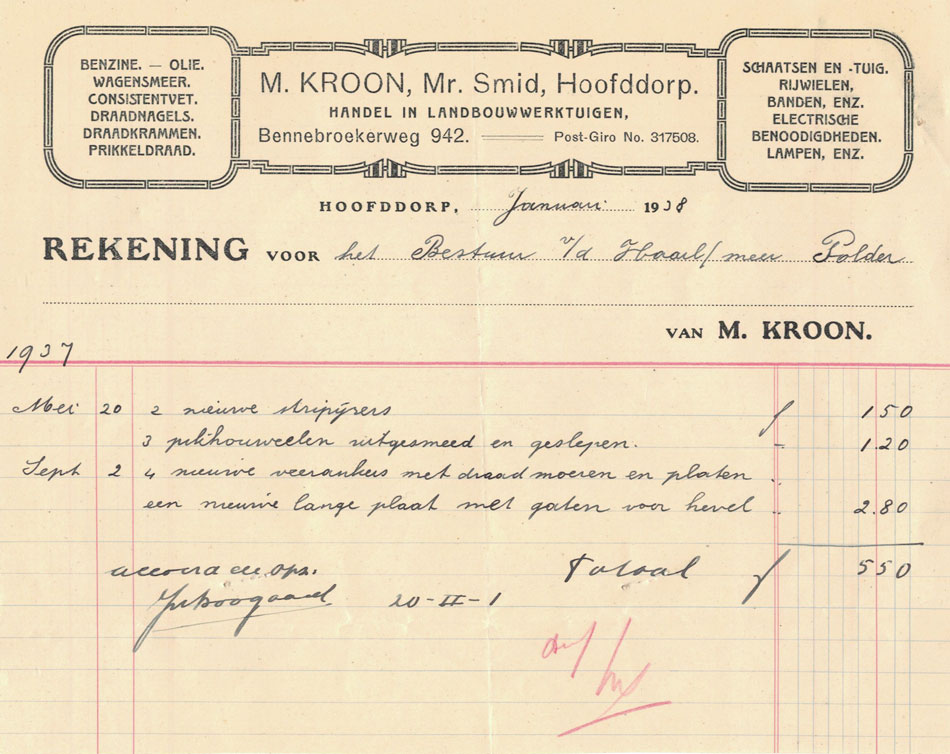 BENZINE. — OLIE.
WAGENSMEER.
CONSISTENTVET.
DRAADNAGELS.
DRAADKRAMMEN.
PRIKKELDRAAD.
M. KROON, Mr. Smid, Hoofddorp.
HANDEL IN LANDBOUWWERKTUIGEN,
Bennebroekerweg 942. Post-Giro No. 317508.
SCHAATSEN EN -TUIG.
RIJWIELEN,
BANDEN, ENZ.
ELECTRISCHE
BENOODIGDHEDEN.
LAMPEN, ENZ.
HOOFDDORP, Januari 1938
REKENING VOOR het Bestuur v/d Haarl/meer Polder
VAN M. KROON.
1937
Mei 20 2 nieuwe stripijzers f 1 50
3 pikhouweelen uitgesmeed en geslepen. - 1.20
Sept 2 4 nieuwe veerankers met draad moeren en platen
een nieuwe lange plaat met gaten voor hevel .. 2.80
Totaal f 5 50
accoord de opz.
20-II-1